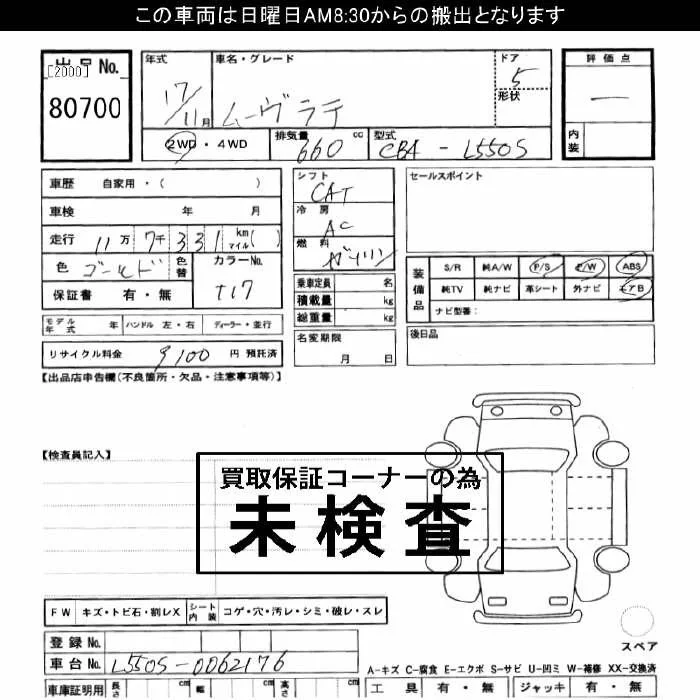 この車両は日曜日AM8:30からの搬出となります
出品No.
[2000]
80700
年式 17/11月
車名・グレード ムーヴラテ
ドア 5
形状
評価点 —
内装
2WD・4WD
排気量 660 cc
型式 CBA - L550S
車歴 自家用・( )
車検 年 月
走行 11万 7千 331 km マイル( )
色 ゴールド 色替 カラーNo. T17
保証書 有・無
シフト CAT
冷房 AC
燃料 ガソリン
乗車定員 名
積載量 kg
総重量 kg
セールスポイント
装備品 S/R 純A/W P/S P/W ABS
純TV 純ナビ 革シート 外ナビ エアB
ナビ型番:
モデル年式 年 ハンドル 左・右 ディーラー・並行
名変期限 月 日
後日品
リサイクル料金 9100 円 預託済
【出品店申告欄(不良箇所・欠品・注意事項等)】
【検査員記入】
買取保証コーナーの為
未検査
FW キズ・トビ石・割レX シート内装 コゲ・穴・汚レ・シミ・破レ・スレ
スペア
登録No.
車台No. L550S-0062176
A-キズ C-腐食 E-エクボ S-サビ U-凹ミ W-補修 XX-交換済
車庫証明用 長さ cm 幅 cm 高さ cm
工具 有・無 ジャッキ 有・無